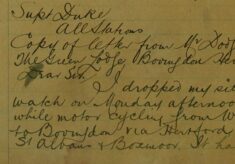 Supt Duke
All Stations
Copy of letter from Mr Dodg
The Green Lodge, Bovingdon Her
Dear Sir
I dropped my sil
watch on Monday afternoo
while motor cycling from W
to Bovingdon via Hertford
St Albans & Boxmoor. It ha